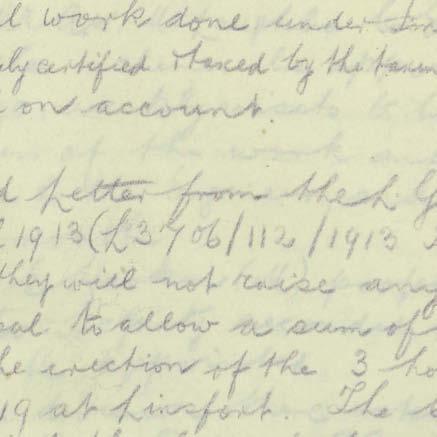 l work done under
ely certified & taxed by the taxin
on account.
d Letter from the L. G
1913 (L3706/112/1913
they will not raise any
sal to allow a sum of
he erection of the 3 ho
19 at Linsfort. The